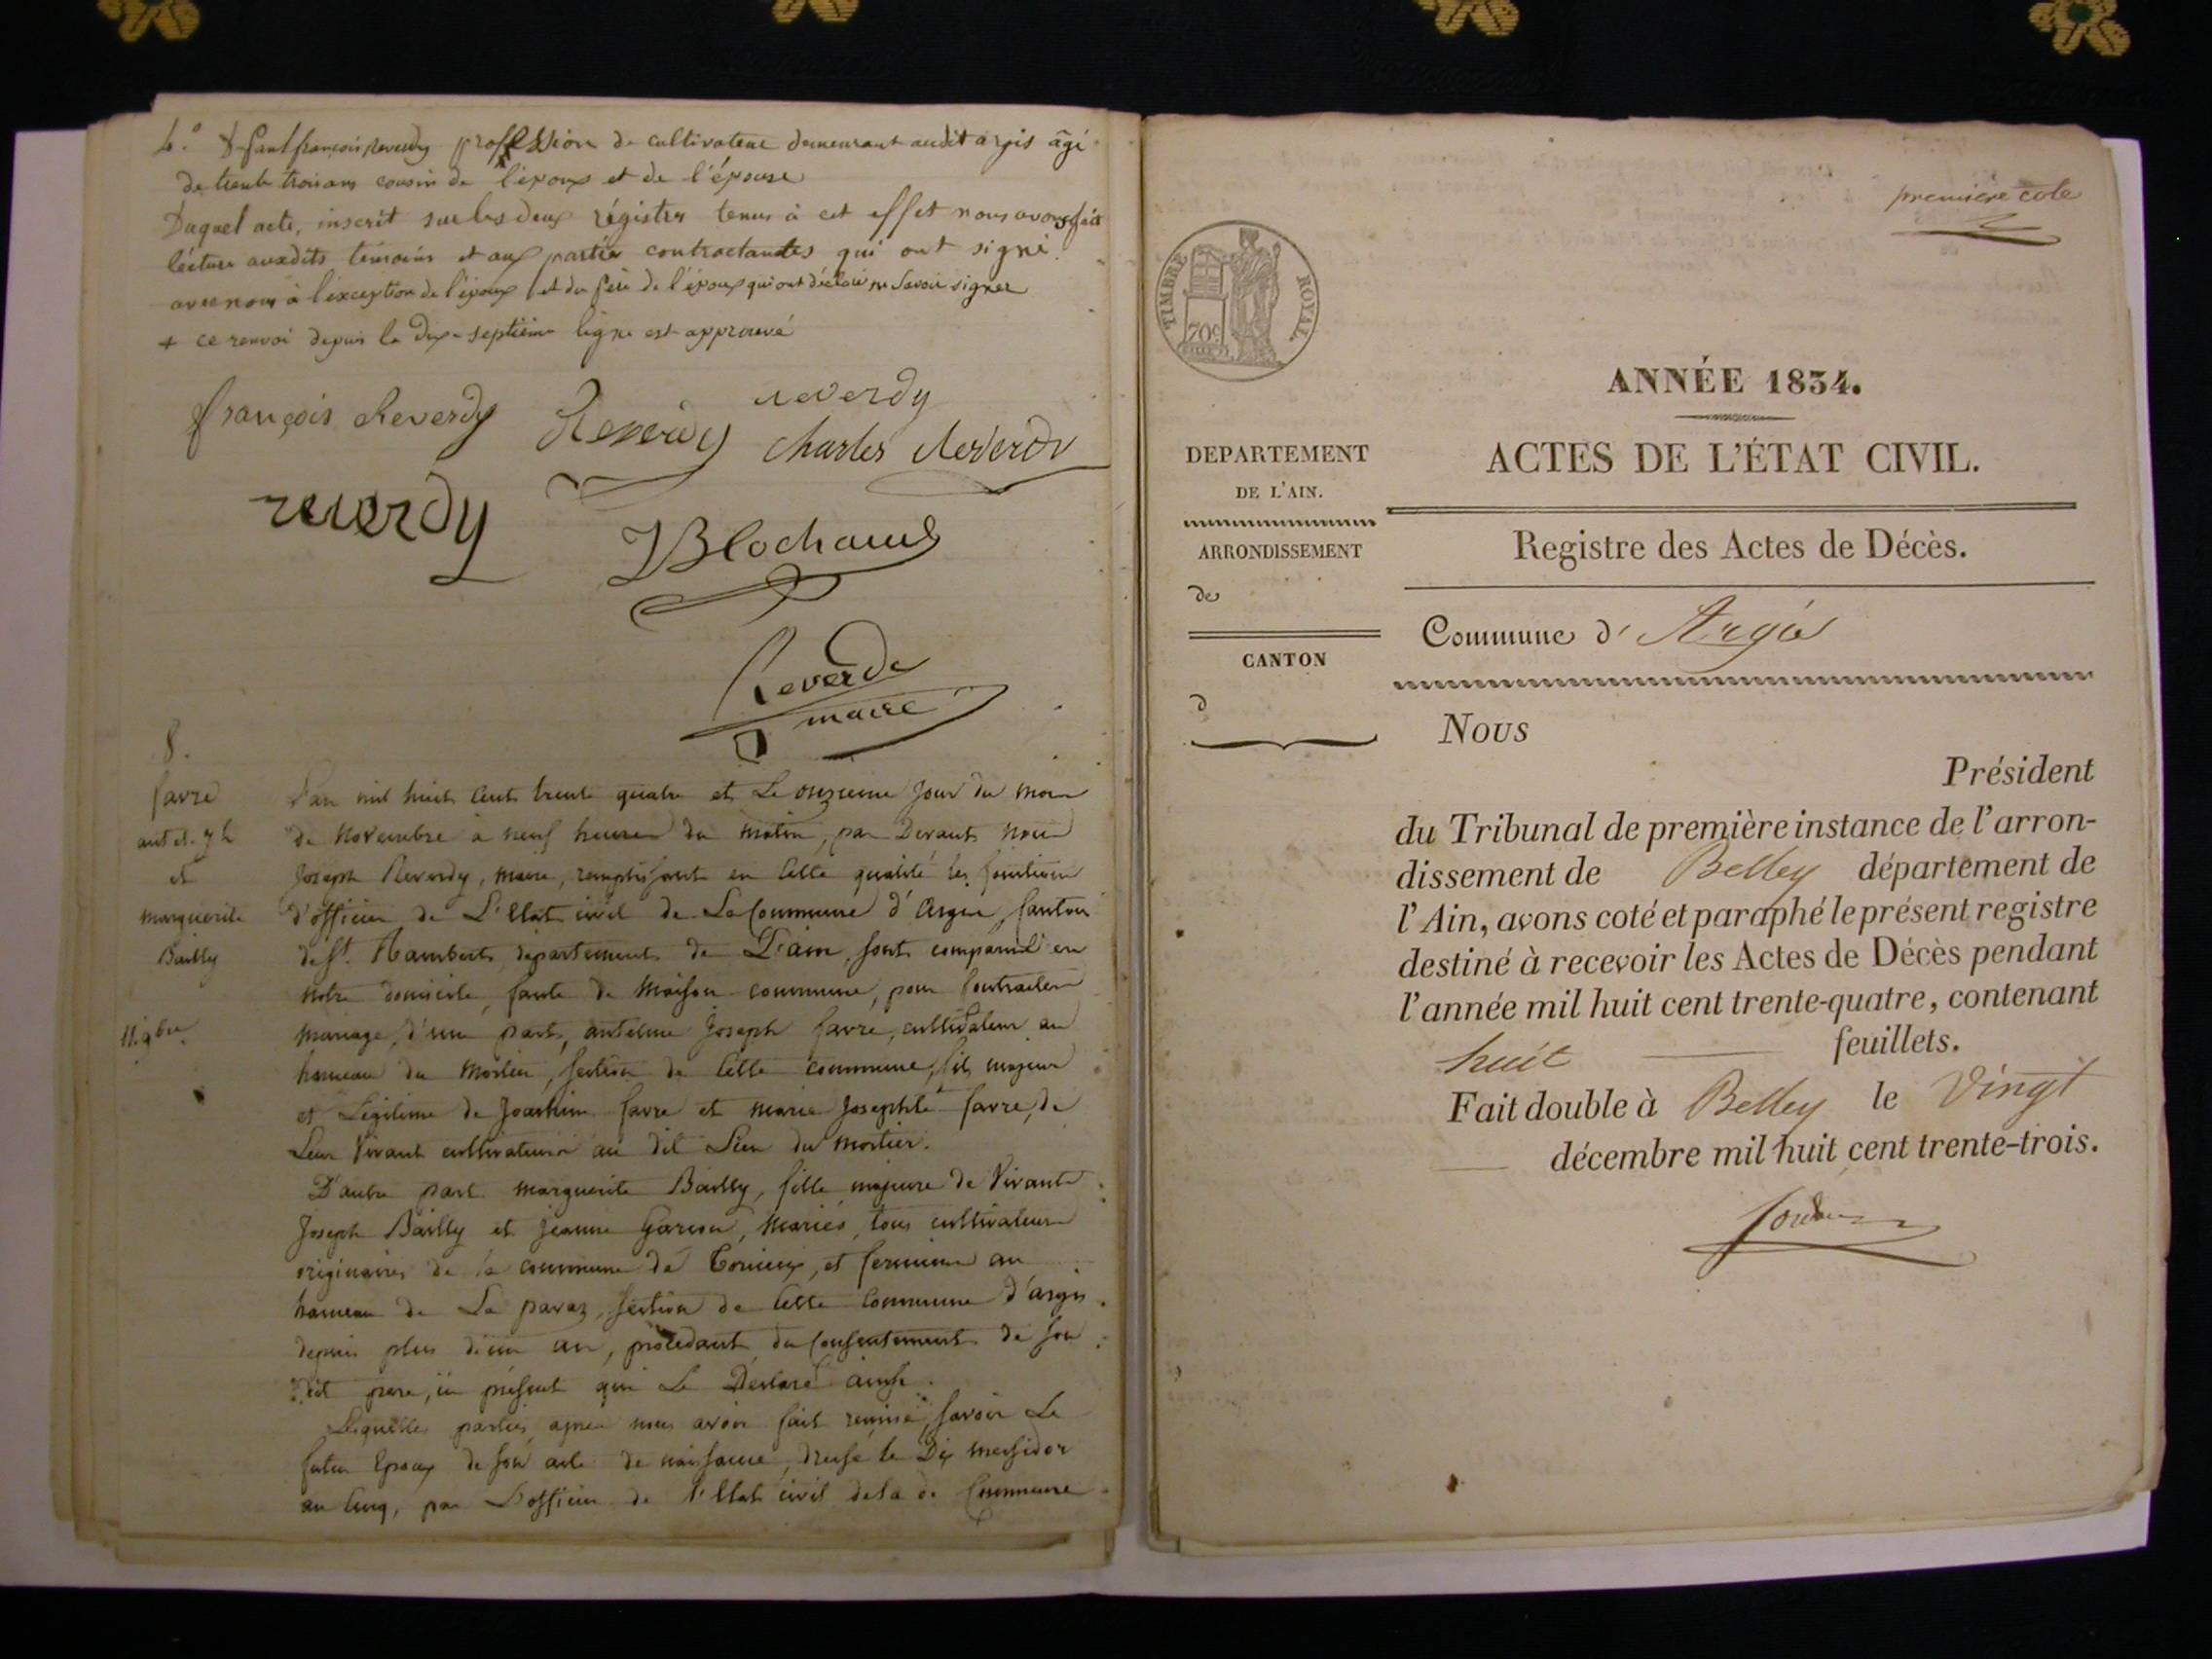 4.º françois reverdy profession de cultivateur demeurant audit argis âgé
de trente trois ans cousin de l'époux et de l'épouse
Duquel acte, inscrit sur les deux régistres tenus à cet effet nous avons fait
lécture auxdits témoins et aux parties contractantes qui ont signé
avec nous à l'exception de l'époux et du père de l'époux qui ont déclaré ne savoir signer
+ ce renvoi depuis la dix-septième ligne est approuvé
françois Reverdy Reverdy reverdy
Charles Reverdy
reverdy
Reverdy
maire
8.
favre
et
marguerite
Bailly
11. 9bre
L'an mil huit cent trente quatre et Le onzieme jour du mois
de Novembre à neuf heures du matin, par Devant Nous
Joseph Reverdy, maire, remplissant en cette qualité les fonctions
d'officier de L'Etat civil de La Commune d'Argis, Canton
de St. Rambert, département de L'ain, sont comparus en
notre domicile, faute de Maison commune, pour Contracter
mariage, d'une part, antelme Joseph favre, cultivateur au
hameau du Mortier, section de Cette commune, fils majeur
et Légitime de Joachim favre et marie Josephte favre, de
Leur Vivant cultivateurs au dit Lieu du Mortier.
D'autre part marguerite Bailly, fille majeure de Vivants
Joseph Bailly et jeanne Garion, Mariés, tous cultivateurs
originaires de la commune de Torcieu, et fermiers au
hameau de La pavaz, section de Cette Commune d'argis
depuis plus d'un an, procédant du Consentement de son
dit pere, ici présent qui Le Déclare ainsi.
Lesquelles parties, après nous avoir fait remise, savoir Le
futur Epoux de son acte de naissance, dressé le Dix messidor
an Cinq, par L'officier de l'Etat civil de la de Commune
première cote
TIMBRE ROYAL.
70c
ANNÉE 1834.
ACTES DE L'ÉTAT CIVIL.
DEPARTEMENT
DE L'AIN.
Registre des Actes de Décès.
ARRONDISSEMENT
de
Commune d' Argis
CANTON
d
Nous
Président
du Tribunal de première instance de l'arron-
dissement de Belley département de
l'Ain, avons coté et paraphé le présent registre
destiné à recevoir les Actes de Décès pendant
l'année mil huit cent trente-quatre, contenant
huit feuillets.
Fait double à Belley le Vingt
décembre mil huit cent trente-trois.